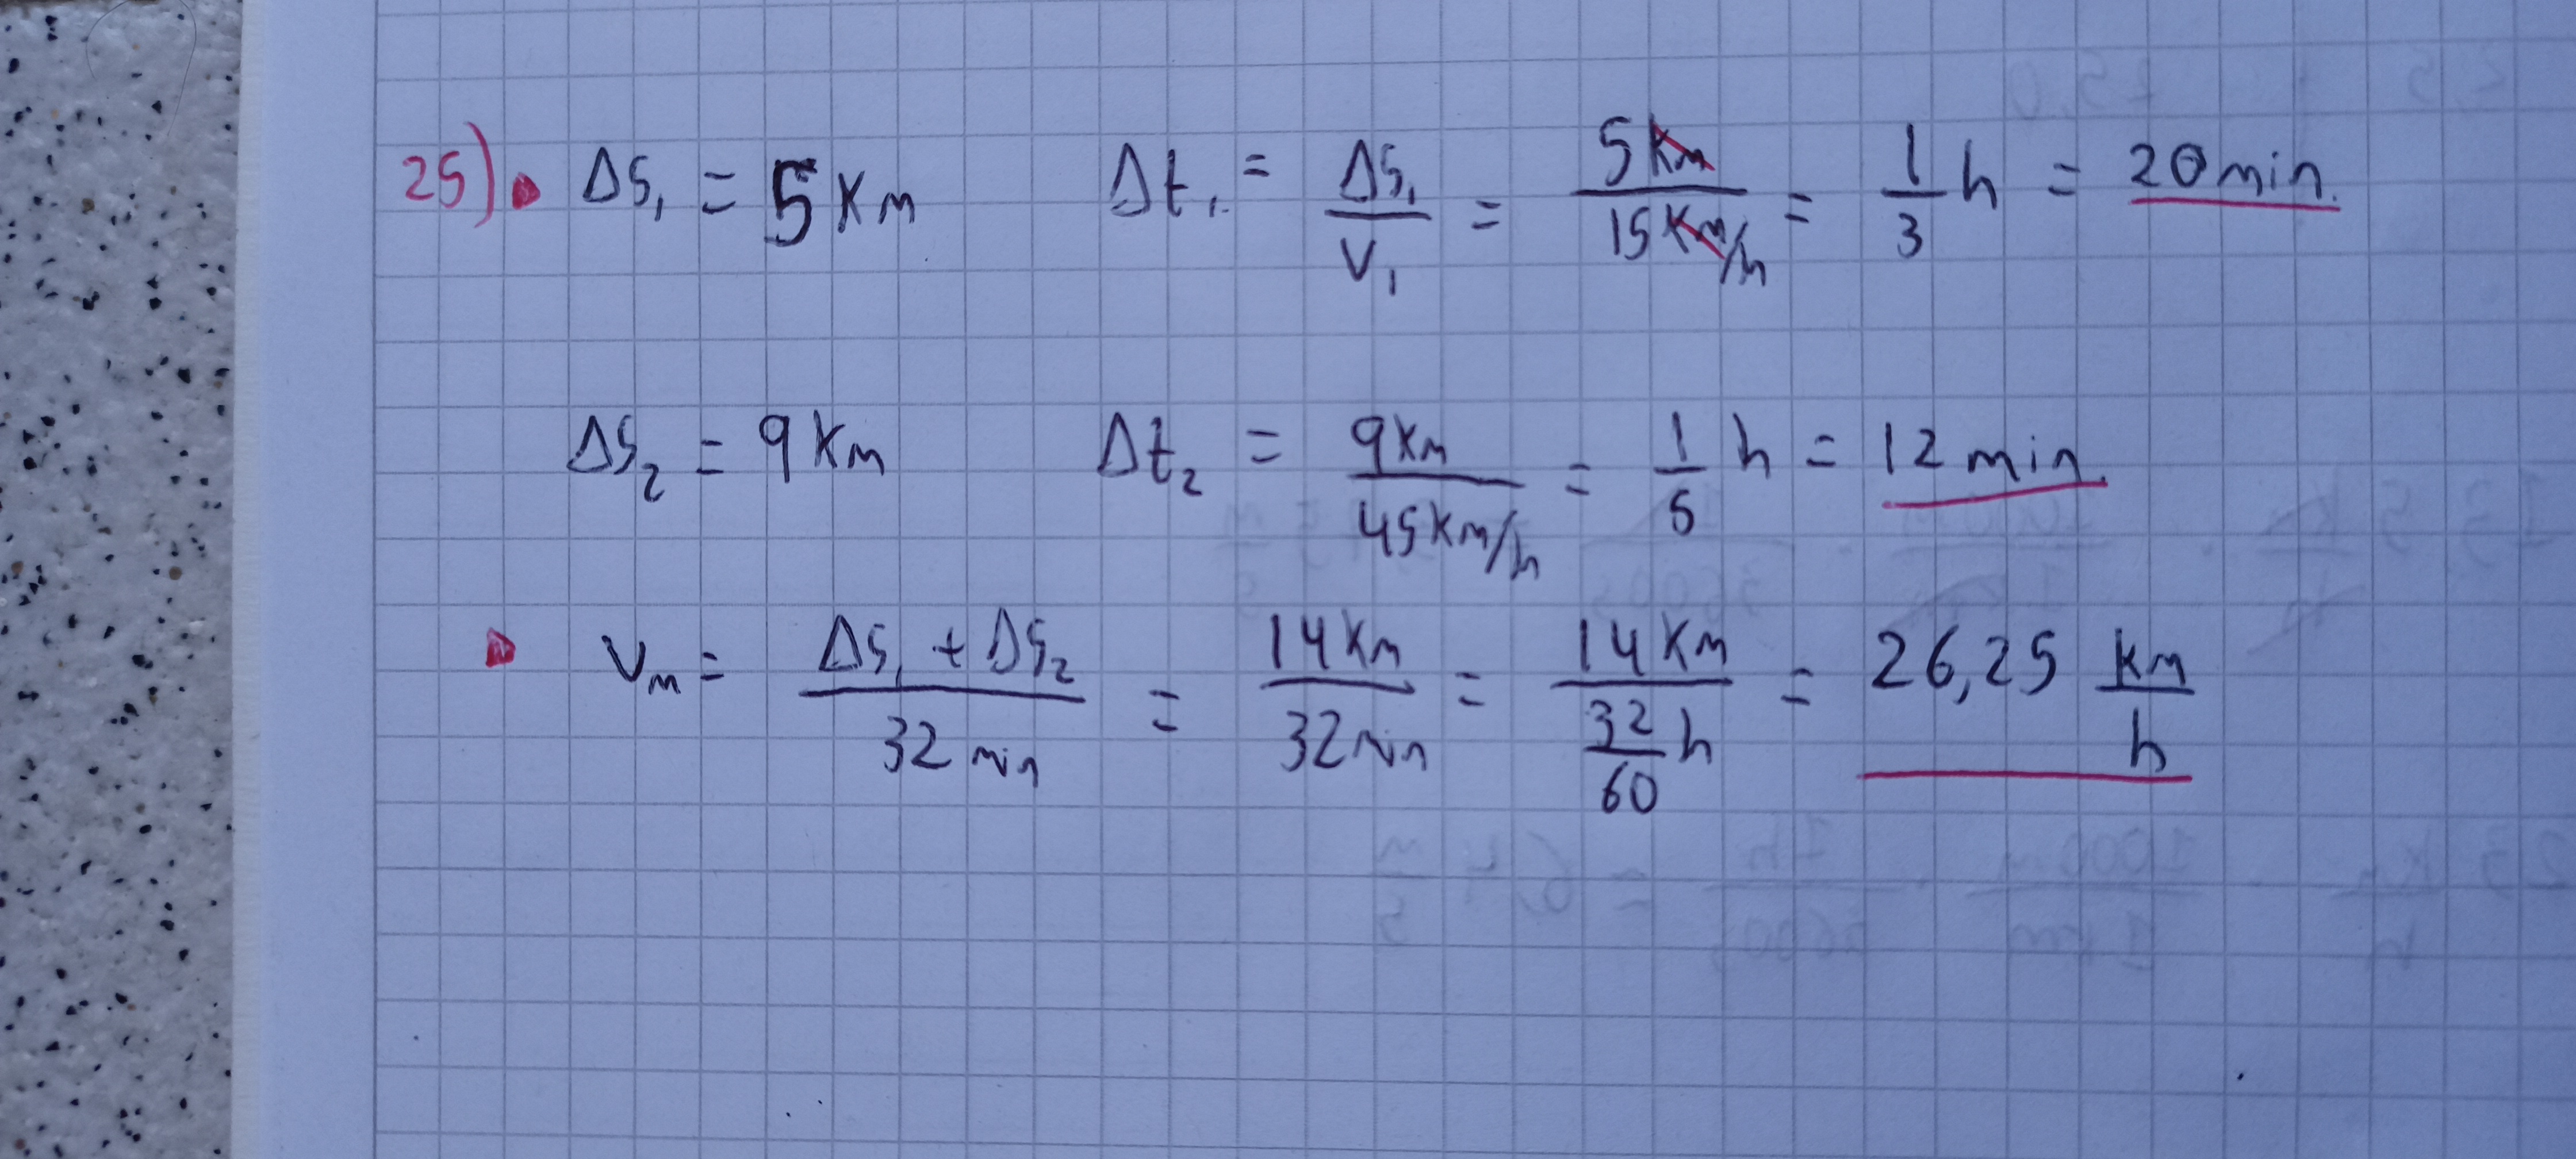 25) Δs₁ = 5 Km Δt₁ = Δs₁/V₁ = 5 Km/15 Km/h = 1/3 h = 20 min.
Δs₂ = 9 Km Δt₂ = 9 Km/45 Km/h = 1/5 h = 12 min.
Vm = Δs₁ + Δs₂/32 min = 14 Km/32 min = 14 Km/32/60 h = 26,25 km/h